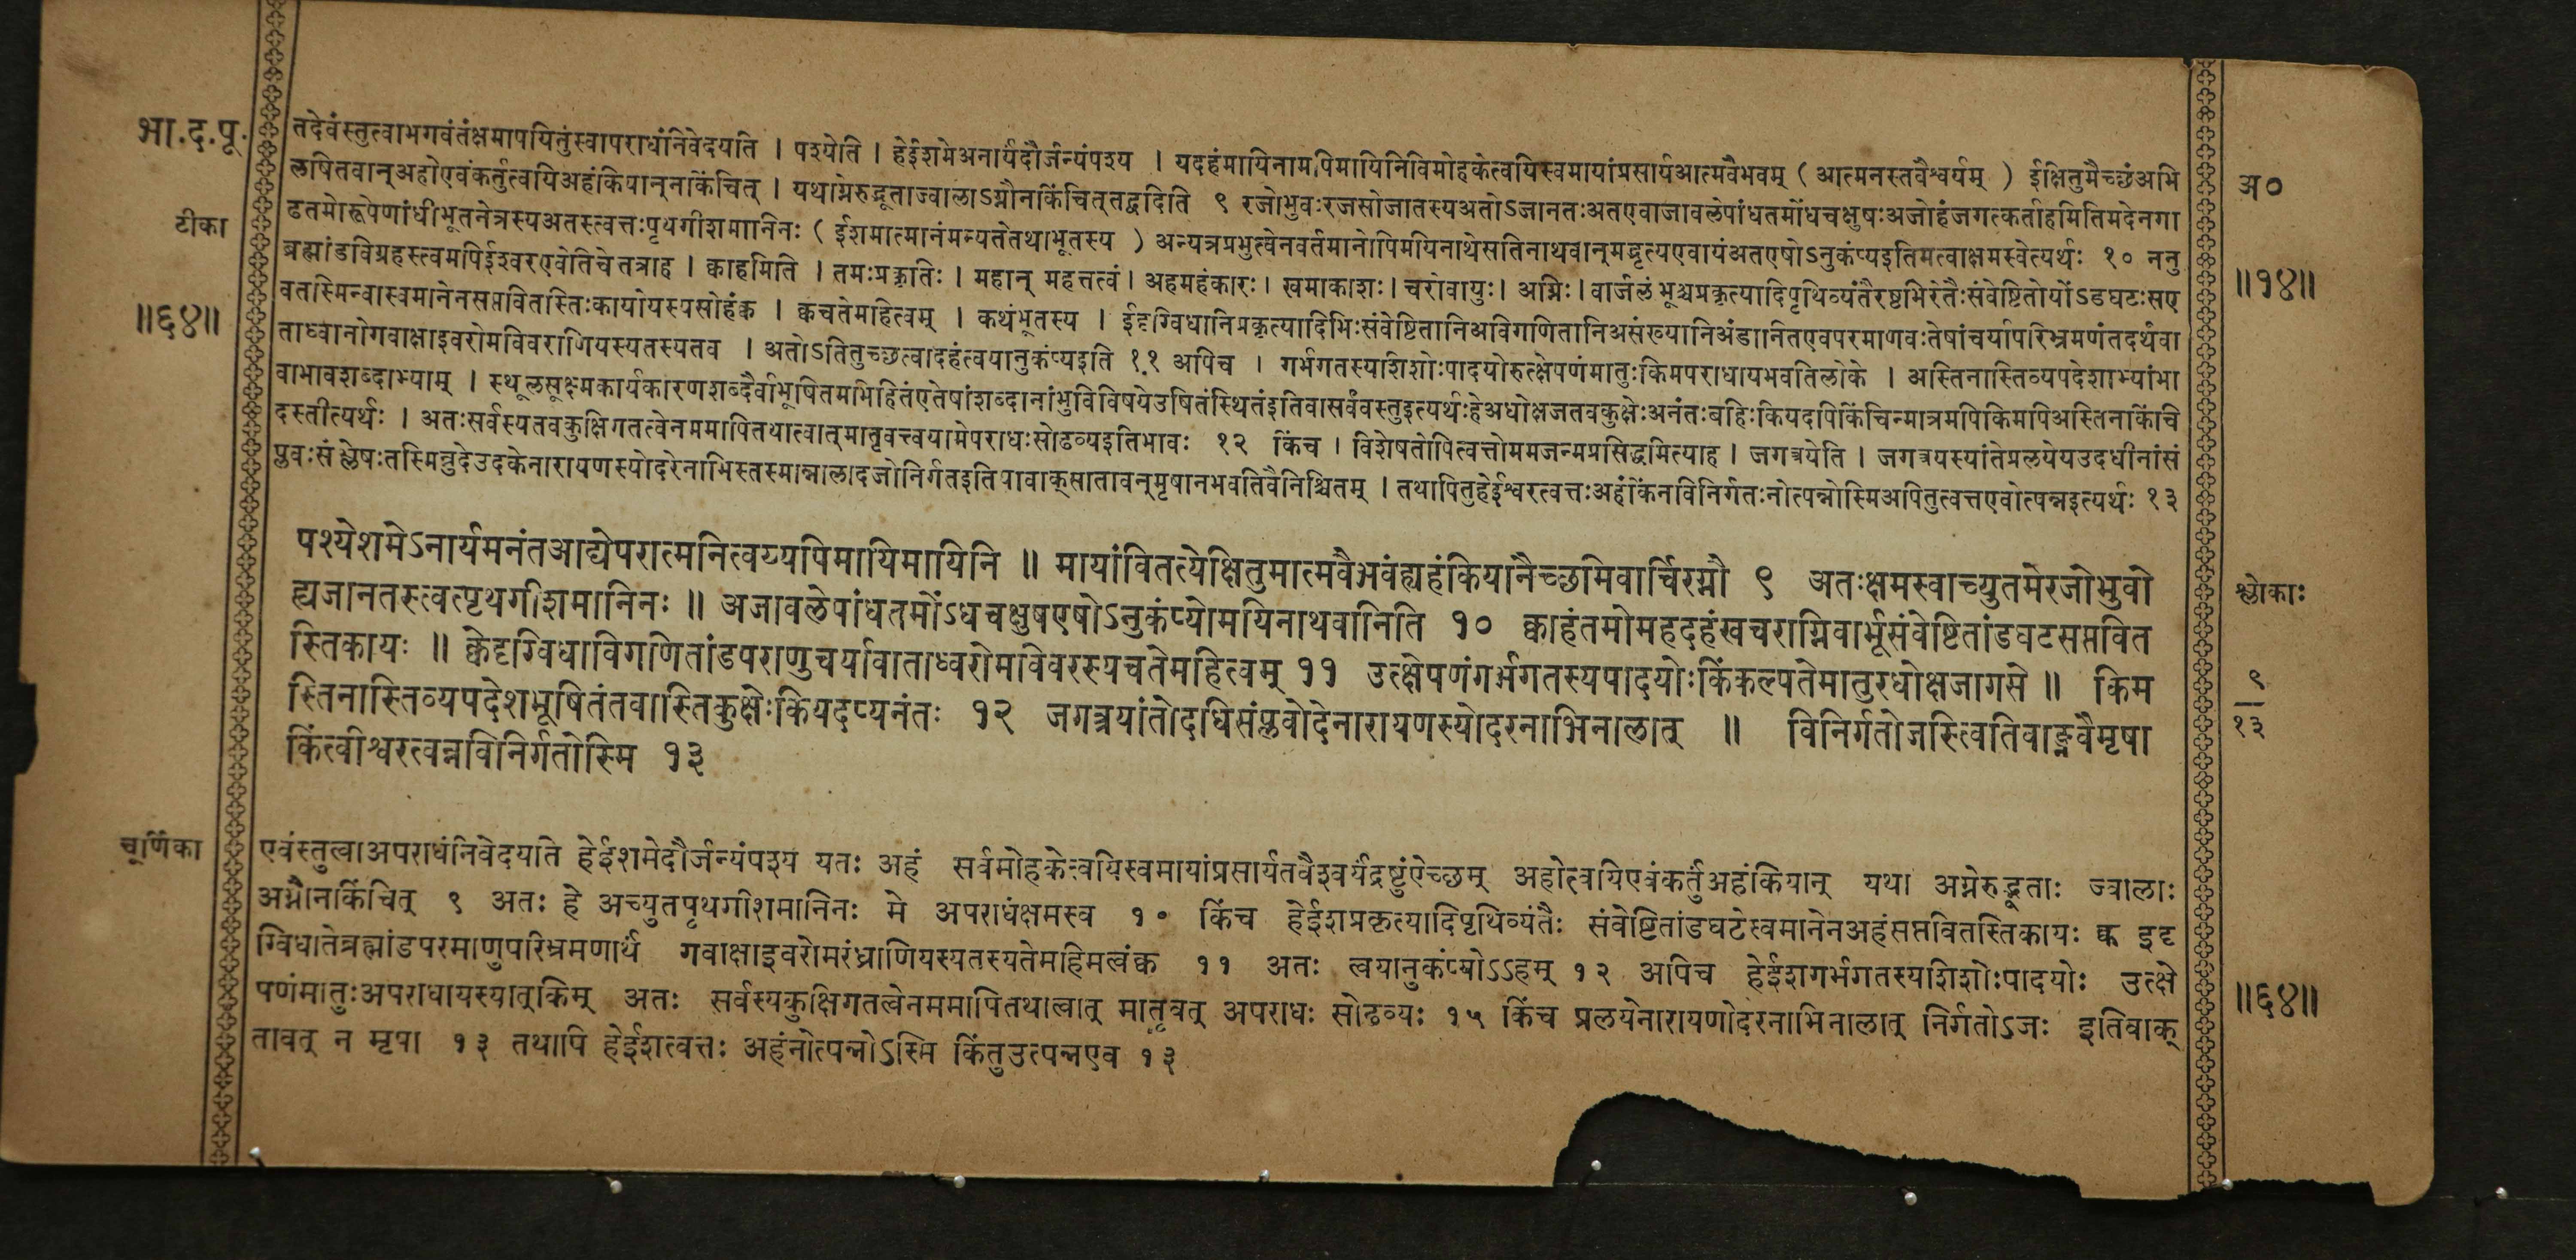 भा.द.पू.
टीका
॥६४॥
तदेवंस्तुत्वाभगवंतंक्षमापयितुंस्वापराधंनिवेदयति । पश्येति । हेईशमेअनार्यदौर्जन्यंपश्य । यदहंमायिनामपिमायिनिविमोहकेत्वयिस्वमायांप्रसार्यआत्मवैभवम् ( आत्मनस्तवैश्वर्यम् ) ईक्षितुमैच्छंअभि
लषितवान्अहोएवंकर्तुंत्वयिअहंकियान्नकिंचित् । यथाग्नेरुद्भूताज्वालाऽग्नौनकिंचित्तद्वदिति ९ रजोभुवःरजसोजातस्यअतोऽजानतःअतएवाजावलेपांधतमोंधचक्षुषःअजोहंजगत्कर्ताहमितिमदेनगा
ढतमोरूपेणांधीभूतनेत्रस्यअतस्त्वत्तःपृथगीशमानिनः ( ईशमात्मानंमन्यतेतथाभूतस्य ) अन्यत्रप्रभुत्वेनवर्तमानोपिमयिनाथेसतिनाथवान्मद्भृत्यएवायंअतएषोऽनुकंप्यइतिमत्वाक्षमस्वेत्यर्थः १० ननु
ब्रह्मांडविग्रहस्त्वमपिईश्वरएवेतिचेत्तत्राह । क्वाहमिति । तमःप्रकृतिः । महान् महत्तत्वं । अहमहंकारः । खमाकाशः । चरोवायुः । अग्निः । वार्जलंभूश्चप्रकृत्यादिपृथिव्यंतैरष्टभिरेतैःसंवेष्टितोयोंऽडघटःसए
वतस्मिन्वास्वमानेनसप्तवितस्तिःकायोयस्यसोहंक्व । क्वचतेमहित्वम् । कथंभूतस्य । ईदृग्विधानिप्रकृत्यादिभिःसंवेष्टितानिअविगणितानिअसंख्यानिअंडानितएवपरमाणवःतेषांचर्यापरिभ्रमणंतदर्थंवा
ताध्वानोगवाक्षाइवरोमविवराणियस्यतस्यतव । अतोऽतितुच्छत्वादहंत्वयानुकंप्यइति ११ अपिच । गर्भगतस्यशिशोःपादयोरुत्क्षेपणंमातुःकिमपराधायभवतिलोके । अस्तिनास्तिव्यपदेशाभ्यांभा
वाभावशब्दाभ्याम् । स्थूलसूक्ष्मकार्यकारणशब्दैर्वाभूषितमभिहितंएतेषांशब्दानांभुविविषयेउषितंस्थितंइतिवासर्वंवस्तुइत्यर्थःहेअधोक्षजतवकुक्षेःअनंतःबहिःकियदपिकिंचिन्मात्रमपिकिमपिअस्तिनकिंचि
दस्तीत्यर्थः । अतःसर्वस्यतवकुक्षिगतत्वेनममापितथात्वात्मातृवत्त्वयामेपराधःसोढव्यइतिभावः १२ किंच । विशेषतोपित्वत्तोममजन्मप्रसिद्धमित्याह । जगत्रयेति । जगत्रयस्यांतेप्रलयेयउदधीनांसं
प्लवःसंश्लेषःतस्मिन्नुदेउदकेनारायणस्योदरेनाभिस्तस्मान्नालादजोनिर्गतइतियावाक्सातावन्मृषानभवतिवैनिश्चितम् । तथापितुहेईश्वरत्वत्तःअहंकिंनविनिर्गतःनोत्पन्नोस्मिअपितुत्वत्तएवोत्पन्नइत्यर्थः १३
पश्येशमेऽनार्यमनंतआद्येपरात्मनित्वय्यपिमायिमायिनि ॥ मायांवितत्येक्षितुमात्मवैभवंह्यहंकियानैच्छमिवार्चिरग्नौ ९ अतःक्षमस्वाच्युतमेरजोभुवो
ह्यजानतस्त्वत्पृथगीशमानिनः ॥ अजावलेपांधतमोंऽधचक्षुषएषोऽनुकंप्योमयिनाथवानिति १० क्वाहंतमोमहदहंखचराग्निवार्भूसंवेष्टितांडघटसप्तवित
स्तिकायः ॥ क्वेदृग्विधाविगणितांडपराणुचर्यावाताध्वरोमविवरस्यचतेमहित्वम् ११ उत्क्षेपणंगर्भगतस्यपादयोःकिंकल्पतेमातुरधोक्षजागसे ॥ किम
स्तिनास्तिव्यपदेशभूषितंतवास्तिकुक्षेःकियदप्यनंतः १२ जगत्रयांतोदधिसंप्लवोदेनारायणस्योदरनाभिनालात् ॥ विनिर्गतोजस्त्वितिवाङ्नवैमृषा
किंत्वीश्वरत्वन्नविनिर्गतोस्मि १३
चूर्णिका
एवंस्तुत्वाअपराधंनिवेदयति हेईशमेदौर्जन्यंपश्य यतः अहं सर्वमोहकेत्वयिस्वमायांप्रसार्यतवैश्वर्यंद्रष्टुंऐच्छम् अहोत्वयिएवंकर्तुंअहंकियान् यथा अग्नेरुद्भूताः ज्वालाः
अग्नौनकिंचित् ९ अतः हे अच्युतपृथगीशमानिनः मे अपराधंक्षमस्व १० किंच हेईशप्रकृत्यादिपृथिव्यंतैः संवेष्टितांडघटेस्वमानेनअहंसप्तवितस्तिकायः क्व इदृ
ग्विधातेब्रह्मांडपरमाणुपरिभ्रमणार्थं गवाक्षाइवरोमरंध्राणियस्यतस्यतेमहिमत्वंक्व ११ अतः त्वयानुकंप्योऽऽहम् १२ अपिच हेईशगर्भगतस्यशिशोःपादयोः उत्क्षे
पणंमातुःअपराधायस्यात्किम् अतः सर्वस्यकुक्षिगतत्वेनममापितथात्वात् मातृवत् अपराधः सोढव्यः १५ किंच प्रलयेनारायणोदरनाभिनालात् निर्गतोऽजः इतिवाक्
तावत् न मृषा १३ तथापि हेईशत्वत्तः अहंनोत्पन्नोऽस्मि किंतुउत्पन्नएव १३
अ०
॥१४॥
श्लोकाः
९
१३
॥६४॥